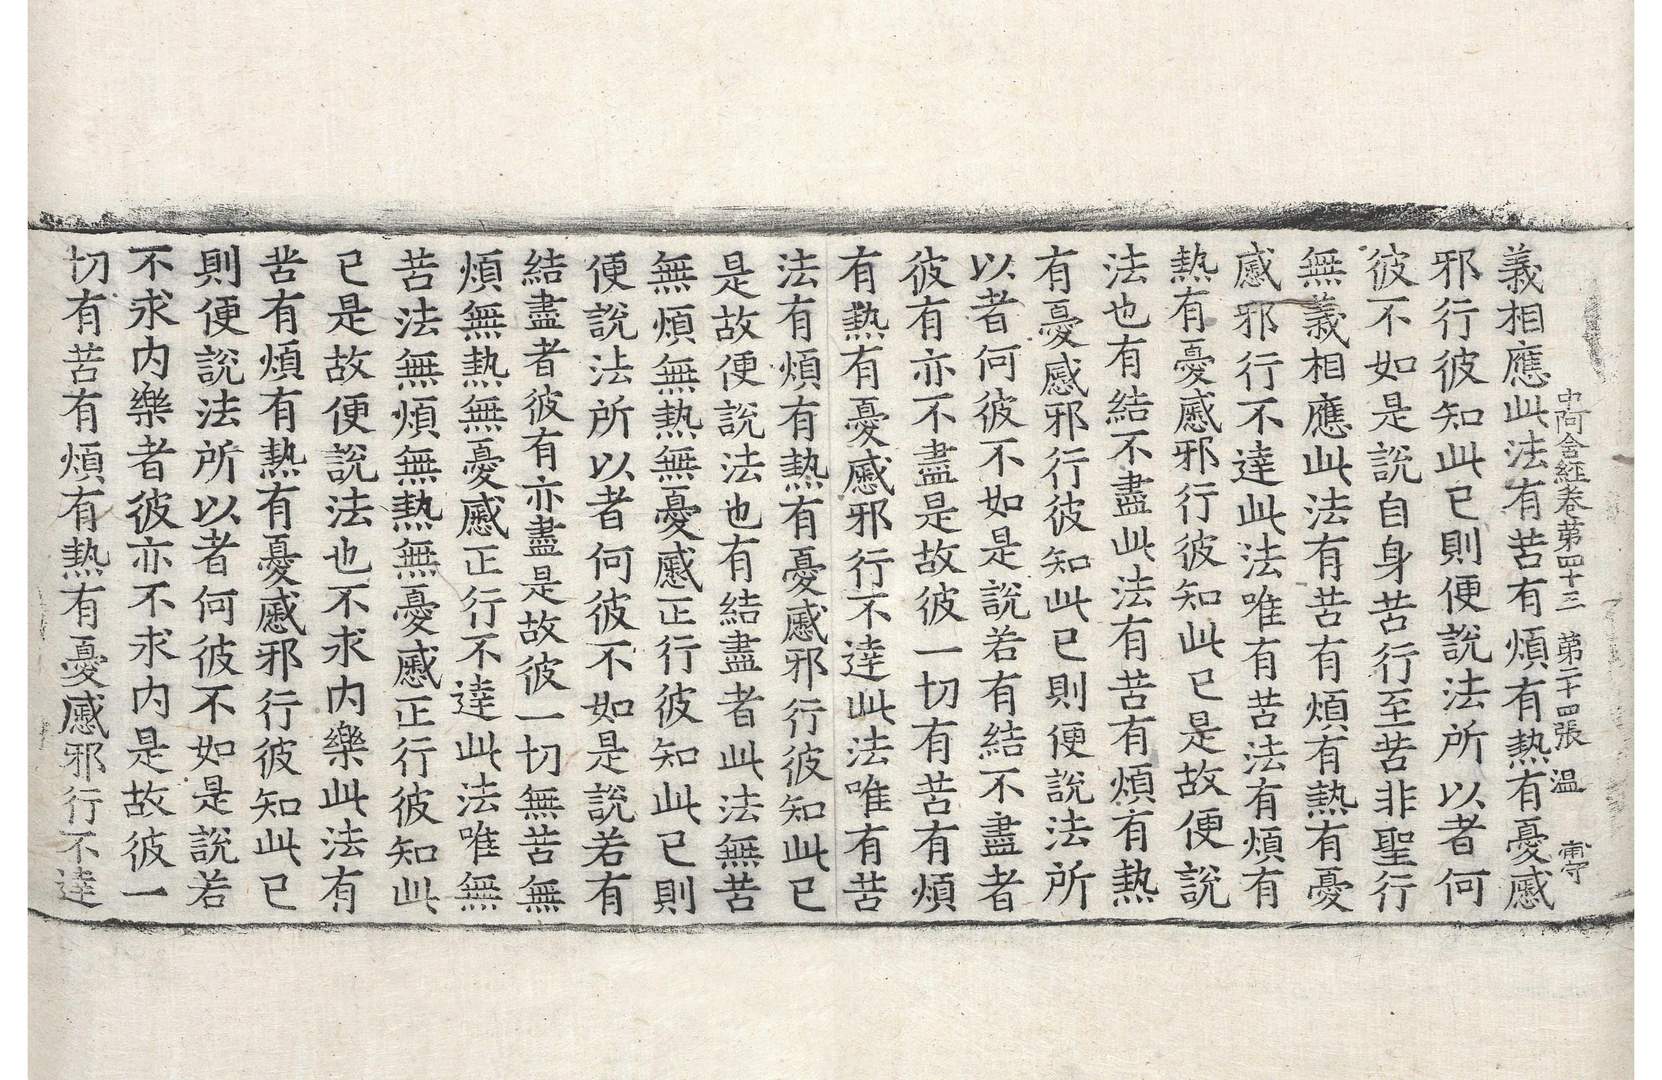 中阿含経卷第四十三 第二十四張 温
義相應此法有苦有煩有熱有憂慼
邪行彼知此已則便說法所以者何
彼不如是說自身苦行至苦非聖行
無義相應此法有苦有煩有熱有憂
慼邪行不達此法唯有苦法有煩有
熱有憂慼邪行彼知此已是故便說
法也有結不盡此法有苦有煩有熱
有憂慼邪行彼知此已則便說法所
以者何彼不如是說若有結不盡者
彼有亦不盡是故彼一切有苦有煩
有熱有憂慼邪行不達此法唯有苦
法有煩有熱有憂慼邪行彼知此已
是故便說法也有結盡者此法無苦
無煩無熱無憂慼正行彼知此已則
便說法所以者何彼不如是說若有
結盡者彼有亦盡是故彼一切無苦無
煩無熱無憂慼正行不達此法唯無
苦法無煩無熱無憂慼正行彼知此
已是故便說法也不求内樂此法有
苦有煩有熱有憂慼邪行彼知此已
則便說法所以者何彼不如是說若
不求内樂者彼亦不求内是故彼一
切有苦有煩有熱有憂慼邪行不達